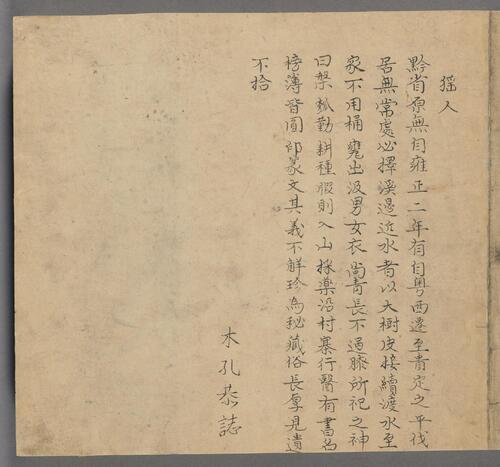 猺人
黔省原無自雍正二年有自粤西遷至貴定之平伐
居無常處必擇溪邉近水者以大樹皮接續渡水至
家不用桶甕出汲男女衣尚青長不過膝所祀之神
曰槃瓠勤耕種暇則入山採藥沿村寨行醫有書名
榜簿皆圓印篆文其義不解珍為秘藏俗長厚見遺
不拾
木孔恭誌